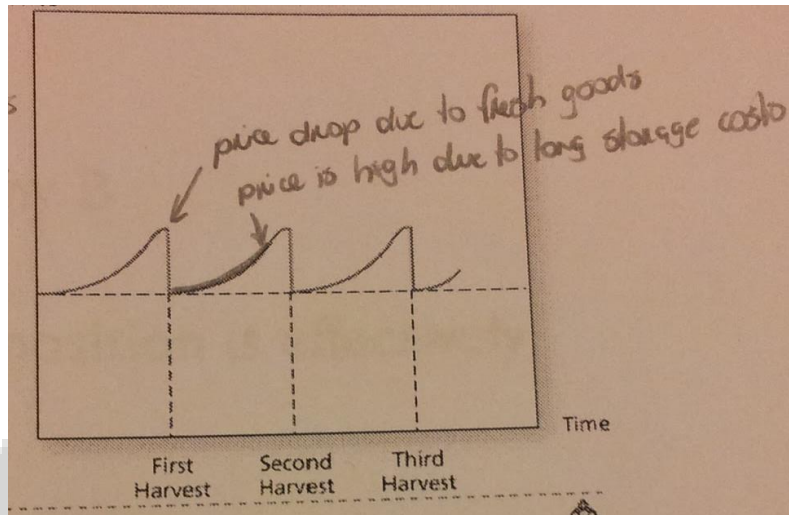 price drop due to fresh goods
price is high due to long storage costs
Time
First
Harvest
Second
Harvest
Third
Harvest